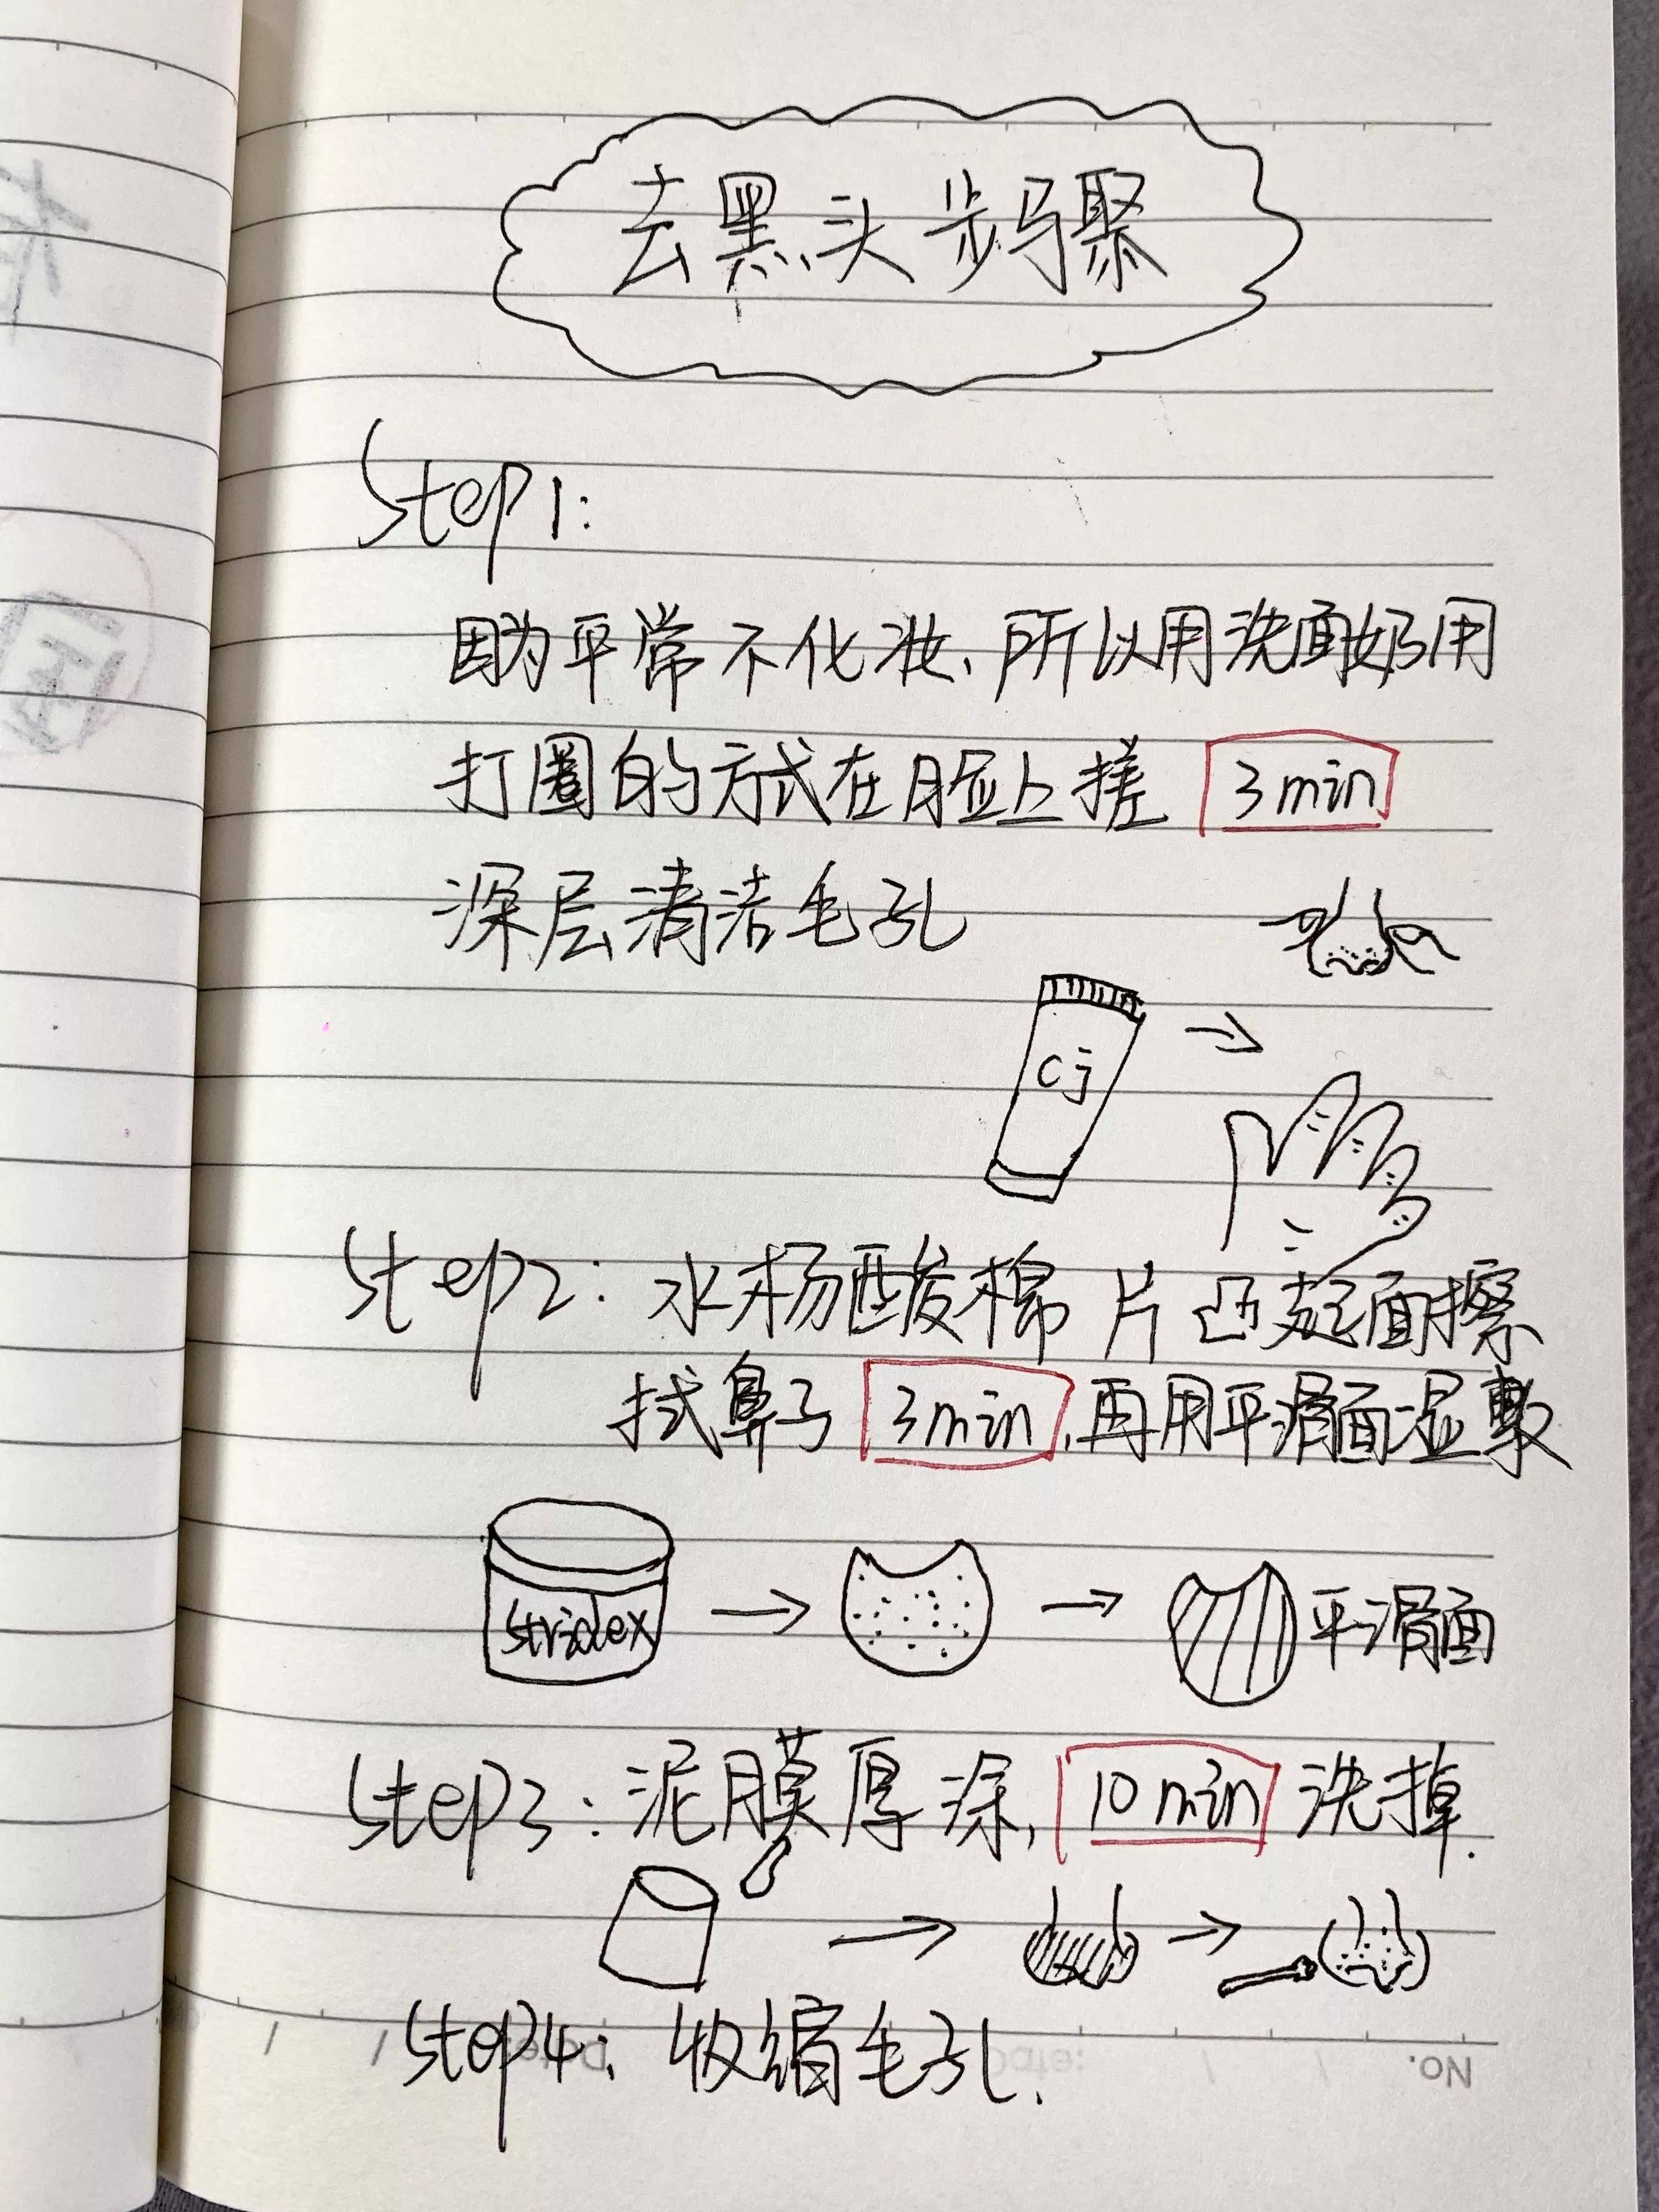 去黑头步骤
Step1:
因为平常不化妆、所以用洗面奶用
打圈的方式在脸上搓 3min
深层清洁毛孔
Cj
Step2: 水杨酸棉片凸起面擦
拭鼻子 3min, 再用平滑面湿敷
stridex
平滑面
Step3: 泥膜厚涂, 10min 洗掉.
Step4: 收缩毛孔.
No.
Date: